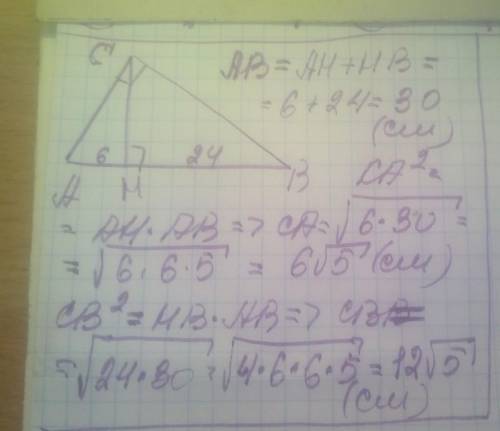 C
AB = AH + HB =
= 6 + 24 = 30
(см)
6
24
A
H
B
CA² =
= AH · AB => CA = √6·30 =
= √6·6·5 = 6√5 (см)
CB² = HB · AB => CB =
= √24·30 = √4·6·6·5 = 12√5
(см)